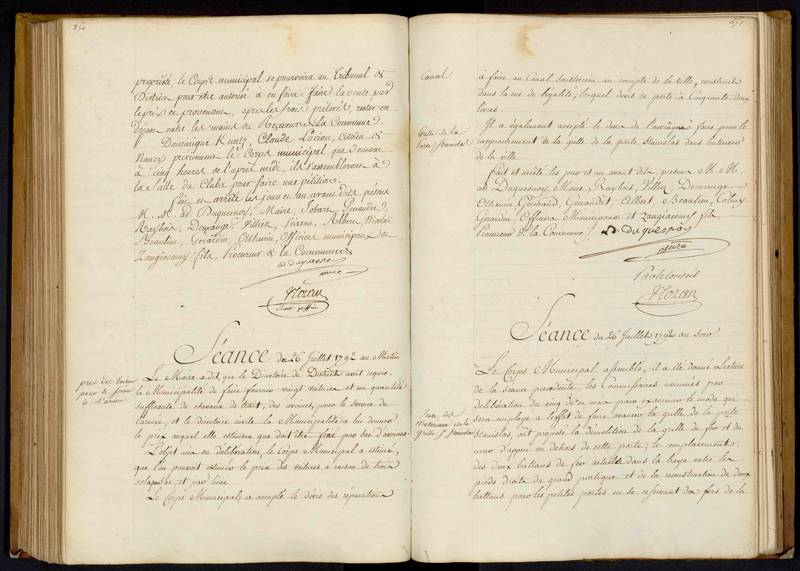 250
propriété, le Corps municipal se pourvoira au Tribunal de
District pour être autorisé à en faire faire la vente par
le prix en provenant, après les frais prélevés, rester en
dépôt entre les mains du Receveur de la Commune.
Dominique Claude Lucion, Citoien de
Nancy préviennent le Corps municipal que demain
à cinq heures de l'après midi, ils s'assembleront à
la Salle du Clubs pour faire une pétition.
Fait et arrêté les jour et an avant dits, présens
M. M. ad. Duquesnoy, Maire, Jobart,
Raybois, Demange, Villiez, Poirson, Nicolas
Beaulieu, Gérardin, Othenin, Officiers municipaux et
Zangiacomy fils, Procureur de la Commune
A. Duquesnoy
maire
Nozan
Séance du 26 Juillet 1792 au Matin
prix des
pour le service
de l'armée
Le Maire a dit, que le Directoire du District avait requis
la Municipalité de faire fournir vingt voitures et une quantité
suffisante de chevaux de trait, des avoines, pour le service de
l'armée, et le directoire invite la Municipalité à lui donner
le prix auquel elle estimera que doit être fixé
L'objet mis en délibération, le Corps Municipal a estimé,
que l'on pouvoit estimer le prix des voitures à raison de trois
sols par lieue.
Le Corps Municipal a accepté le devis des réparations
251
Canal
à faire au Canal souterrein au compte de la ville, construit
dans la rue de l'égalité, lequel devis se porte à Cinquante deux
livres.
Grille de la
Porte Stanislas
Il a également accepté le devis de l'ouvrage à faire pour le
rapprochement de la grille de la porte Stanislas dans l'intérieur
de la ville.
Fait et arrêté les jour et an avant dits, présens M. M.
ad. Duquesnoy, Maire, Raybois, Villiez, Demange
Othenin, Beaulieu,
Gérardin, Officiers Municipaux et Zangiacomy fils
Procureur de la Commune A. Duquesnoy
maire
Par le Conseil
Nozan
Séance du 26 Juillet 1792 au soir.
Matériaux de la
Grille St. Stanislas
Le Corps Municipal assemblé, il a été donné Lecture
de la séance précédente, les Commissaires nommés par
délibération du cinq de ce mois pour examiner le mode qui
sera employé à l'effet de faire avancer la grille de la porte
Stanislas, ont proposé la démolition de la grille de fer et du
mur d'appui en dehors de cette porte, le remplacement
des deux battans de fer actuels dans la baye entre les
pieds droits du grand portique et de la reconstruction de deux
battans pour les petites portes en se servant des fers de la